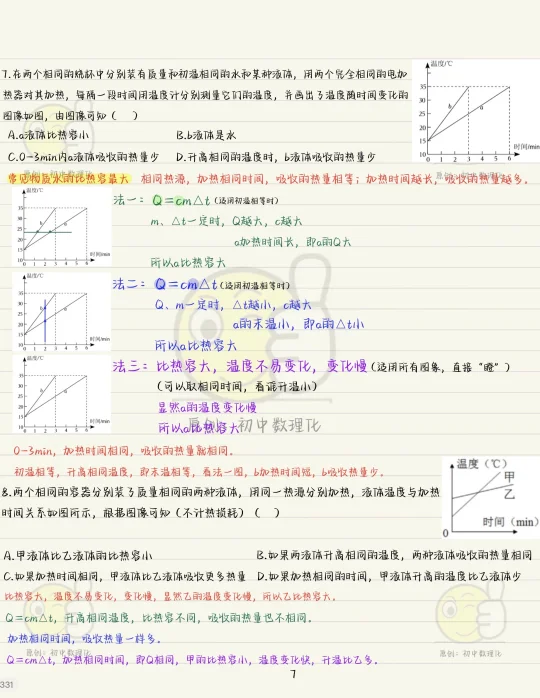 7.在两个相同的烧杯中分别装有质量和初温相同的水和某种液体，用两个完全相同的电加
热器对其加热，每隔一段时间用温度计分别测量它们的温度，并画出了温度随时间变化的
图像如图，由图像可知（ ）
温度/℃
35
30
25
20
15
10
b
a
0 1 2 3 4 5 6
时间/min
A.a液体比热容小
B.b液体是水
C.0-3min内a液体吸收的热量少
D.升高相同的温度时，b液体吸收的热量少
常见物质水的比热容最大 相同热源，加热相同时间，吸收的热量相等；加热时间越长，吸收的热量越多。
温度/℃
35
30
25
20
15
10
b
a
0 1 2 3 4 5 6
时间/min
法一：Q=cm△t（适用初温相等时）
m、△t一定时，Q越大，c越大
a加热时间长，即a的Q大
所以a比热容大
温度/℃
35
30
25
20
15
10
b
a
0 1 2 3 4 5 6
时间/min
法二：Q=cm△t（适用初温相等时）
Q、m一定时，△t越小，c越大
a的末温小，即a的△t小
所以a比热容大
温度/℃
35
30
25
20
15
10
b
a
0 1 2 3 4 5 6
时间/min
法三：比热容大，温度不易变化，变化慢（适用所有图像，直接“瞪”）
（可以取相同时间，看谁升温小）
显然a的温度变化慢
所以a比热容大
原创：初中数理化
0-3min，加热时间相同，吸收的热量就相同。
初温相等，升高相同温度，即末温相等，看法一图，b加热时间短，b吸收热量少。
8.两个相同的容器分别装了质量相同的两种液体，用同一热源分别加热，液体温度与加热
时间关系如图所示，根据图像可知（不计热损耗）（ ）
温度（℃）
甲
乙
0
时间（min）
A.甲液体比乙液体的比热容小
B.如果两液体升高相同的温度，两种液体吸收的热量相同
C.如果加热时间相同，甲液体比乙液体吸收更多热量
D.如果加热相同的时间，甲液体升高的温度比乙液体少
比热容大，温度不易变化，变化慢，显然乙的温度变化慢，所以乙比热容大。
Q=cm△t，升高相同温度，比热容不同，吸收的热量也不相同。
加热相同时间，吸收热量一样多。
Q=cm△t，加热相同时间，即Q相同，甲的比热容小，温度变化快，升温比乙多。
原创：初中数理化
原创：初中数理化
7
331